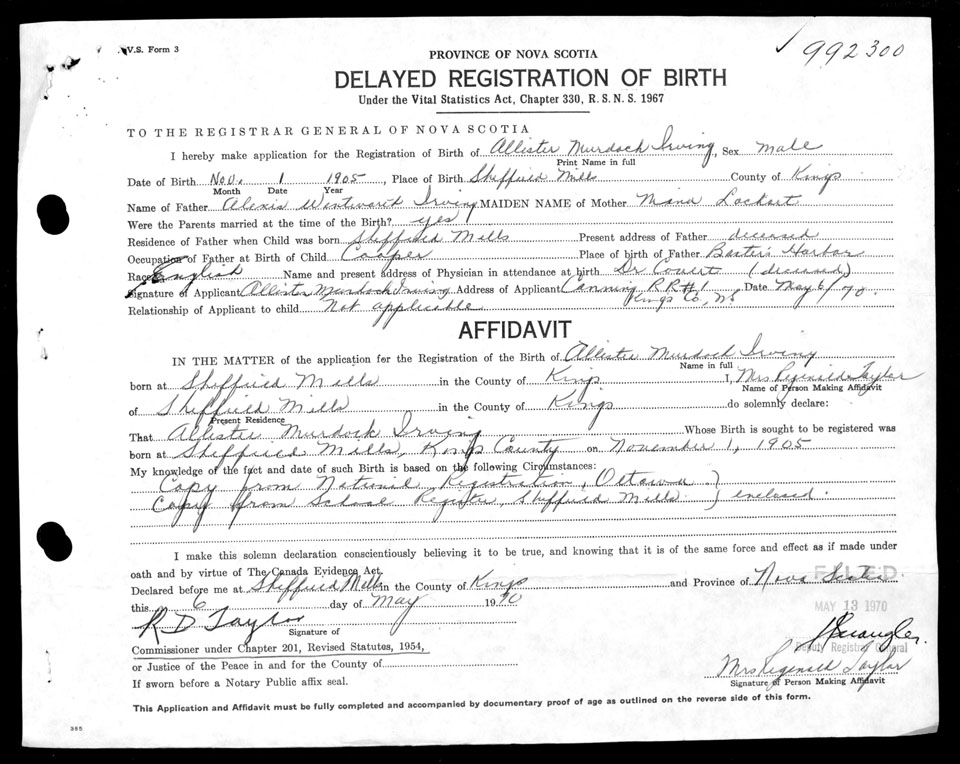 V.S. Form 3
992300
PROVINCE OF NOVA SCOTIA
DELAYED REGISTRATION OF BIRTH
Under the Vital Statistics Act, Chapter 330, R.S.N.S. 1967
TO THE REGISTRAR GENERAL OF NOVA SCOTIA
I hereby make application for the Registration of Birth of Allister Murdock Irving, Sex Male
Print Name in full
Date of Birth Nov. 1 1905, Place of Birth Sheffield Mills County of Kings
Month Date Year
Name of Father Alexis Wentworth Irving MAIDEN NAME of Mother Lockart
Were the Parents married at the time of the Birth? yes
Residence of Father when Child was born Sheffield Mills Present address of Father deceased
Occupation of Father at Birth of Child Cooper Place of birth of Father Baxter's Harbor
Race English Name and present address of Physician in attendance at birth Dr (deceased)
Signature of Applicant Allister Murdock Irving Address of Applicant Canning R R #1 Date May 6/70.
Kings Co, NS
Relationship of Applicant to child Not applicable
AFFIDAVIT
IN THE MATTER of the application for the Registration of the Birth of Allister Murdock Irving
Name in full
born at Sheffield Mills in the County of Kings I, Mrs Reginald Taylor
Name of Person Making Affidavit
of Sheffield Mills in the County of Kings do solemnly declare:
Present Residence
That Allister Murdock Irving Whose Birth is sought to be registered was
born at Sheffield Mills, Kings County on November 1, 1905
My knowledge of the fact and date of such Birth is based on the following Circumstances:
Copy from National Registration, Ottawa }
Copy from School Register, Sheffield Mills } enclosed.
I make this solemn declaration conscientiously believing it to be true, and knowing that it is of the same force and effect as if made under
oath and by virtue of The Canada Evidence Act.
FILED
Declared before me at Sheffield Mills in the County of Kings and Province of Nova Scotia
this 6 day of May 1970
MAY 13 1970
R D Taylor
Signature of
Deputy Registrar General
Commissioner under Chapter 201, Revised Statutes, 1954,
or Justice of the Peace in and for the County of
Mrs Reginald Taylor
Signature of Person Making Affidavit
If sworn before a Notary Public affix seal.
This Application and Affidavit must be fully completed and accompanied by documentary proof of age as outlined on the reverse side of this form.
365